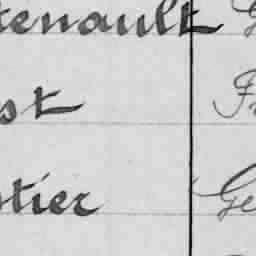 tenault G
st Fr
tier Ge